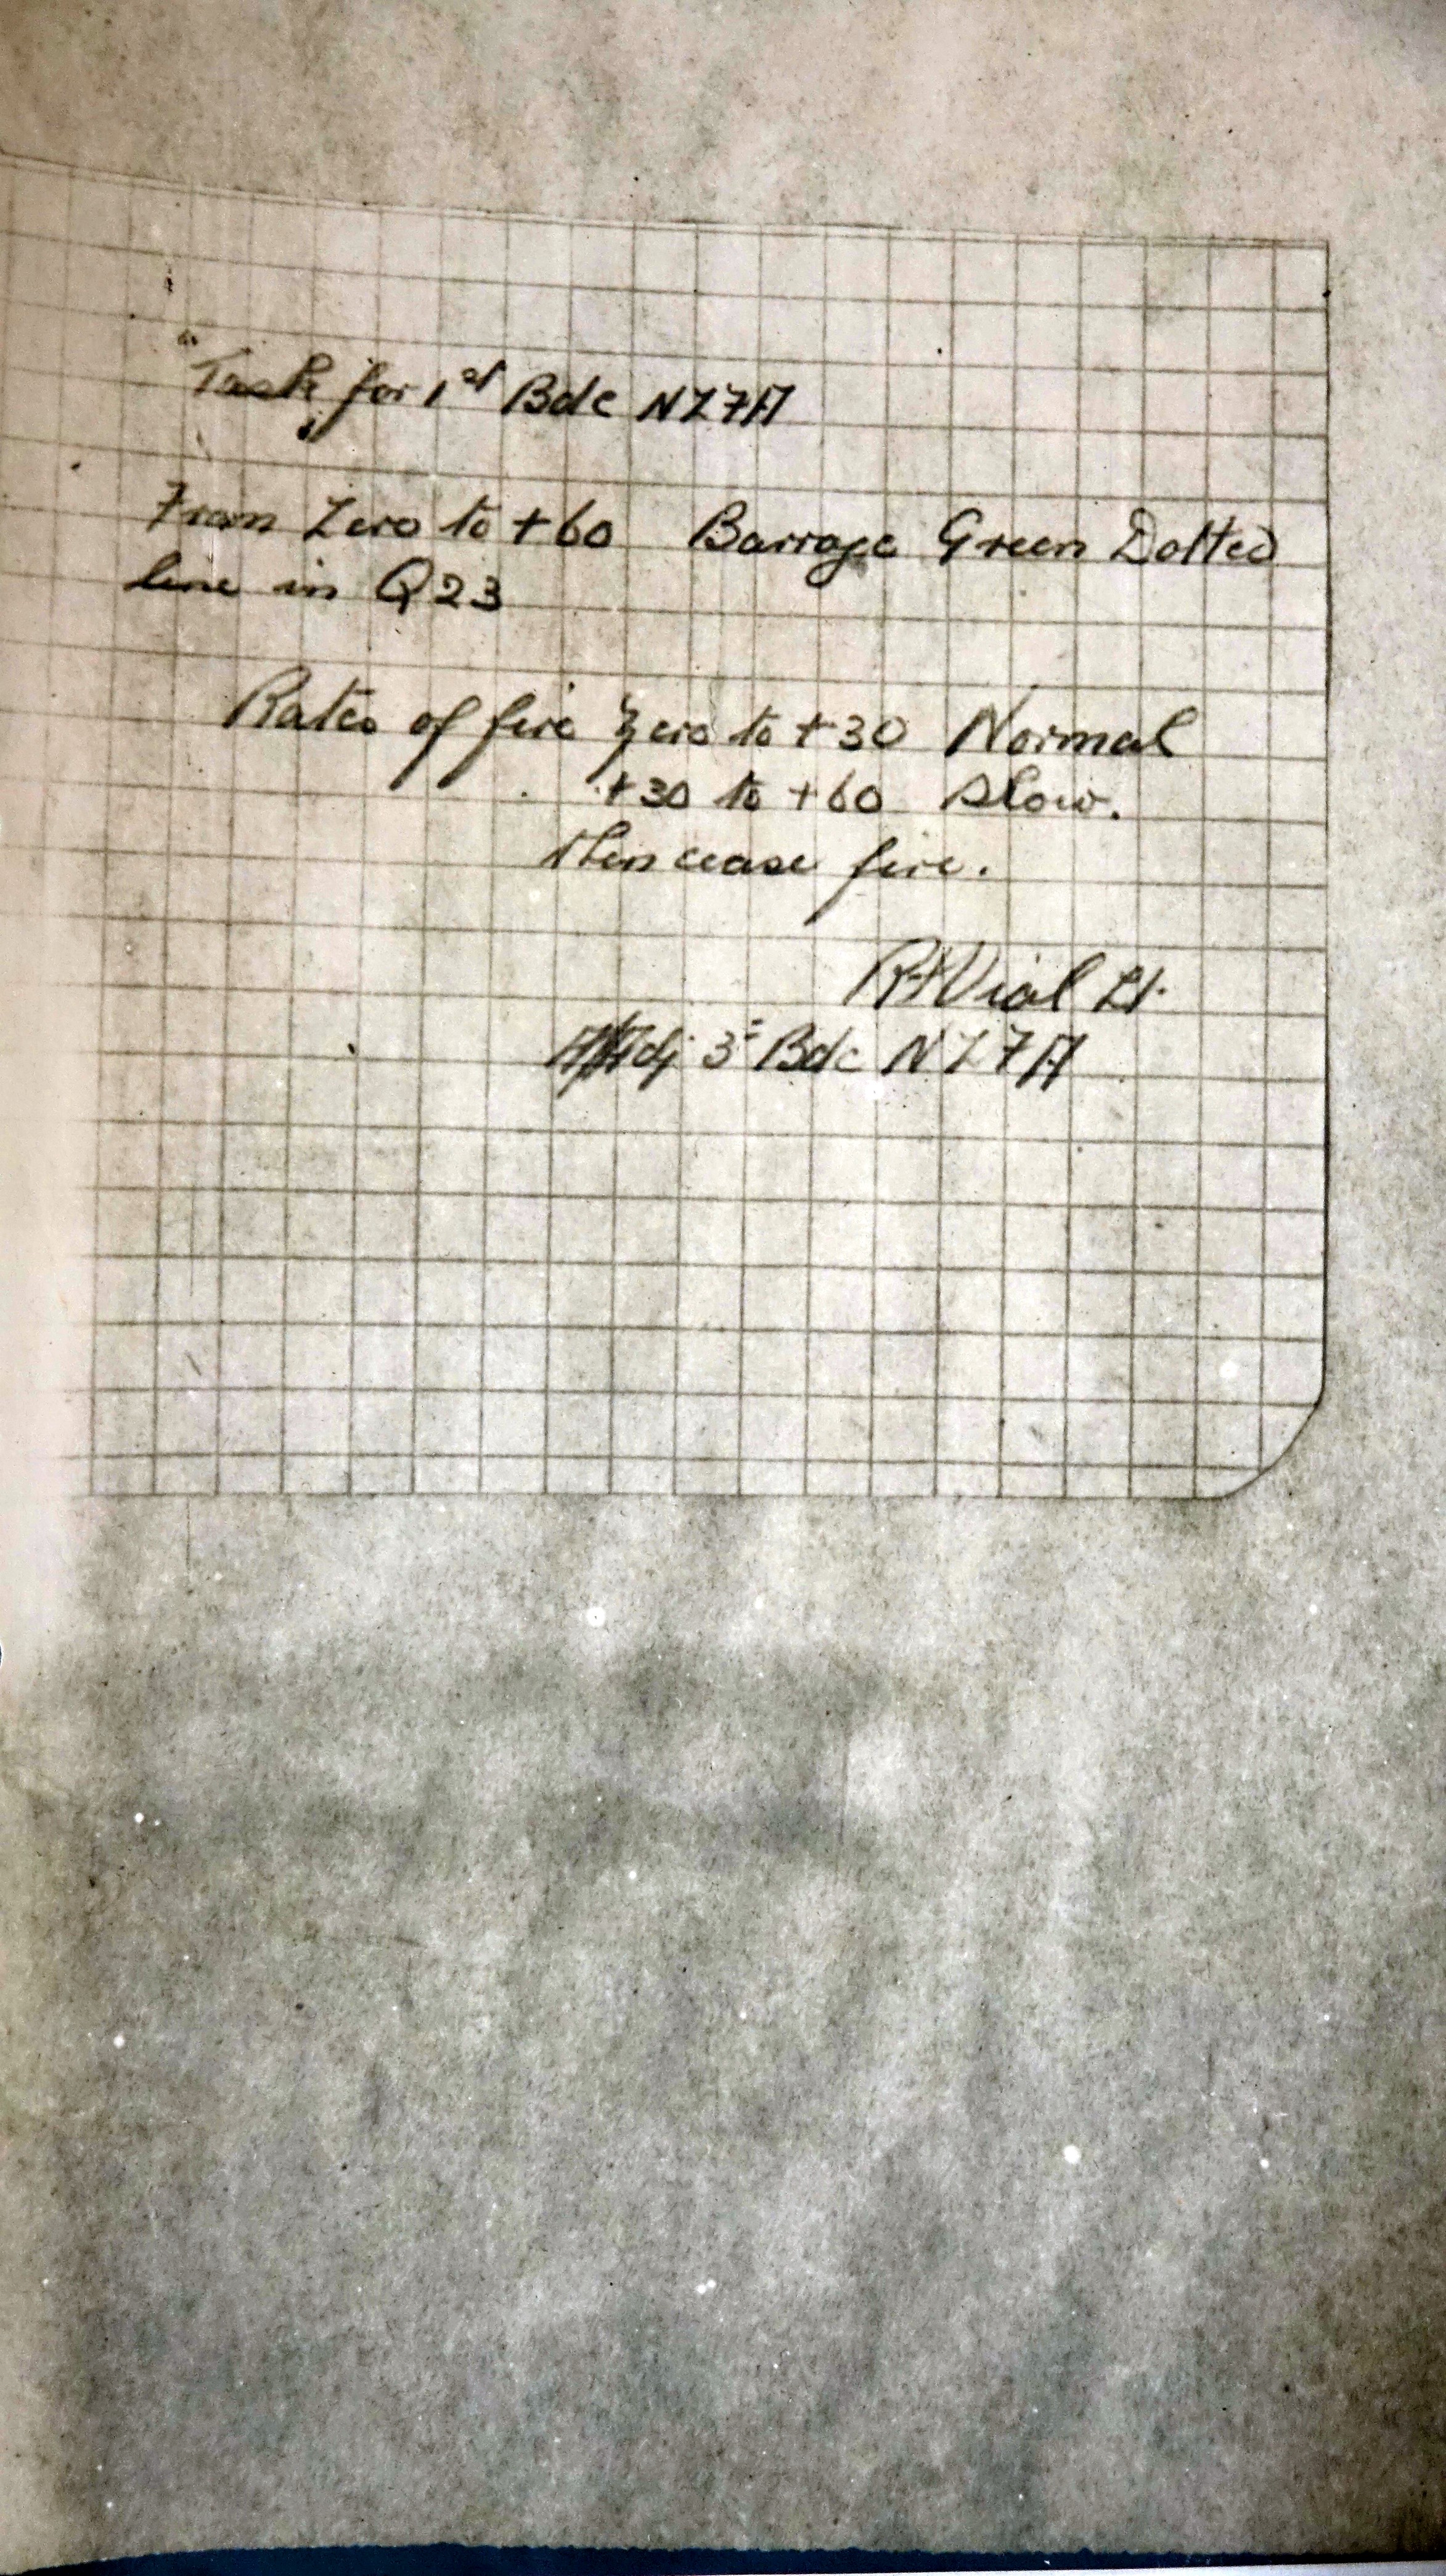 "Task for 1st Bde NZFA
From Zero to +60 Barrage Green Dotted
line in Q23
Rates of fire Zero to +30 Normal
+30 to +60 Slow.
then cease fire.
Vial Lt.
Adj 3rd Bde NZFA